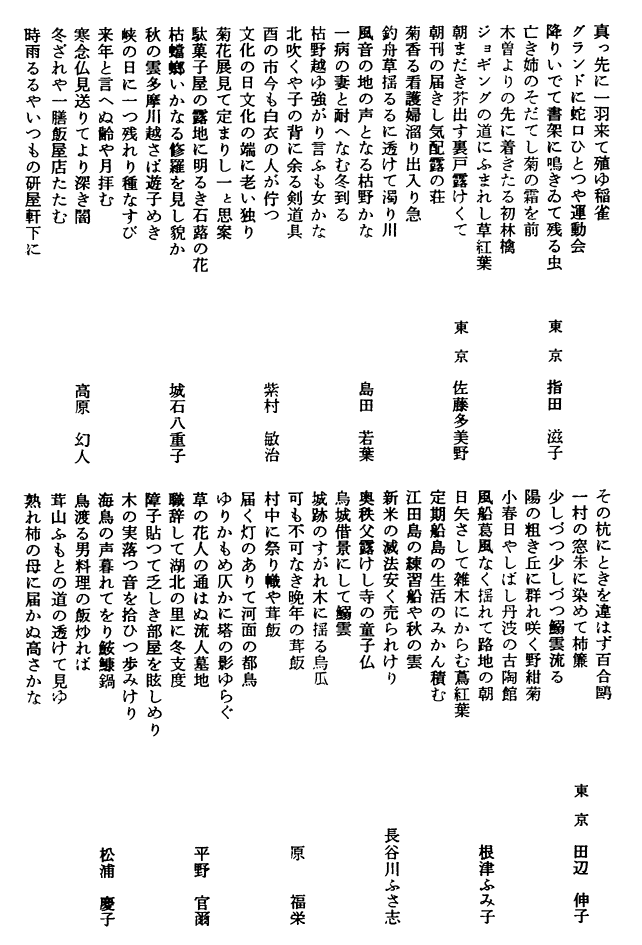 真っ先に一羽来て殖ゆ稲雀
グランドに蛇口ひとつや運動会
降りいでて書架に鳴きゐて残る虫
東京 指田 滋子
亡き姉のそだてし菊の霜を前
木曽よりの先に着きたる初林檎
ジョギングの道にふまれし草紅葉
朝まだき芥出す裏戸露けくて
東京 佐藤多美野
朝刊の届きし気配露の荘
菊香る看護婦溜り出入り急
釣舟草揺るるに透けて濁り川
風音の地の声となる枯野かな
島田 若葉
一病の妻と耐へなむ冬到る
枯野越ゆ強がり言ふも女かな
北吹くや子の背に余る剣道具
酉の市今も白衣の人が佇つ
紫村 敏治
文化の日文化の端に老い独り
菊花展見て定まりし一と思案
駄菓子屋の露地に明るき石蕗の花
枯蟷螂いかなる修羅を見し貌か
城石八重子
秋の雲多摩川越さば遊子めき
峡の日に一つ残れり種なすび
来年と言へぬ齢や月拝む
寒念仏見送りてより深き闇
高原 幻人
冬ざれや一膳飯屋店たたむ
時雨るるやいつもの研屋軒下に
その杭にときを違はず百合鷗
一村の窓朱に染めて柿簾
東京 田辺 伸子
少しづつ少しづつ鰯雲流る
陽の粗き丘に群れ咲く野紺菊
小春日やしばし丹波の古陶館
風船葛風なく揺れて路地の朝
根津ふみ子
日矢さして雑木にからむ蔦紅葉
定期船島の生活のみかん積む
江田島の練習船や秋の雲
新米の減法安く売られけり
長谷川ふさ志
奥秩父露けし寺の童子仏
烏城借景にして鰯雲
城跡のすがれ木に揺る烏瓜
可も不可なき晩年の茸飯
原 福栄
村中に祭り幟や茸飯
届く灯のありて河面の都鳥
ゆりかもめ仄かに塔の影ゆらぐ
草の花人の通はぬ流人墓地
平野 官爾
職辞して湖北の里に冬支度
障子貼つて乏しき部屋を眩しめり
木の実落つ音を拾ひつ歩みけり
海鳥の声暮れてをり鮟鱇鍋
松浦 慶子
鳥渡る男料理の飯炒れば
茸山ふもとの道の透けて見ゆ
熟れ柿の母に届かぬ高さかな